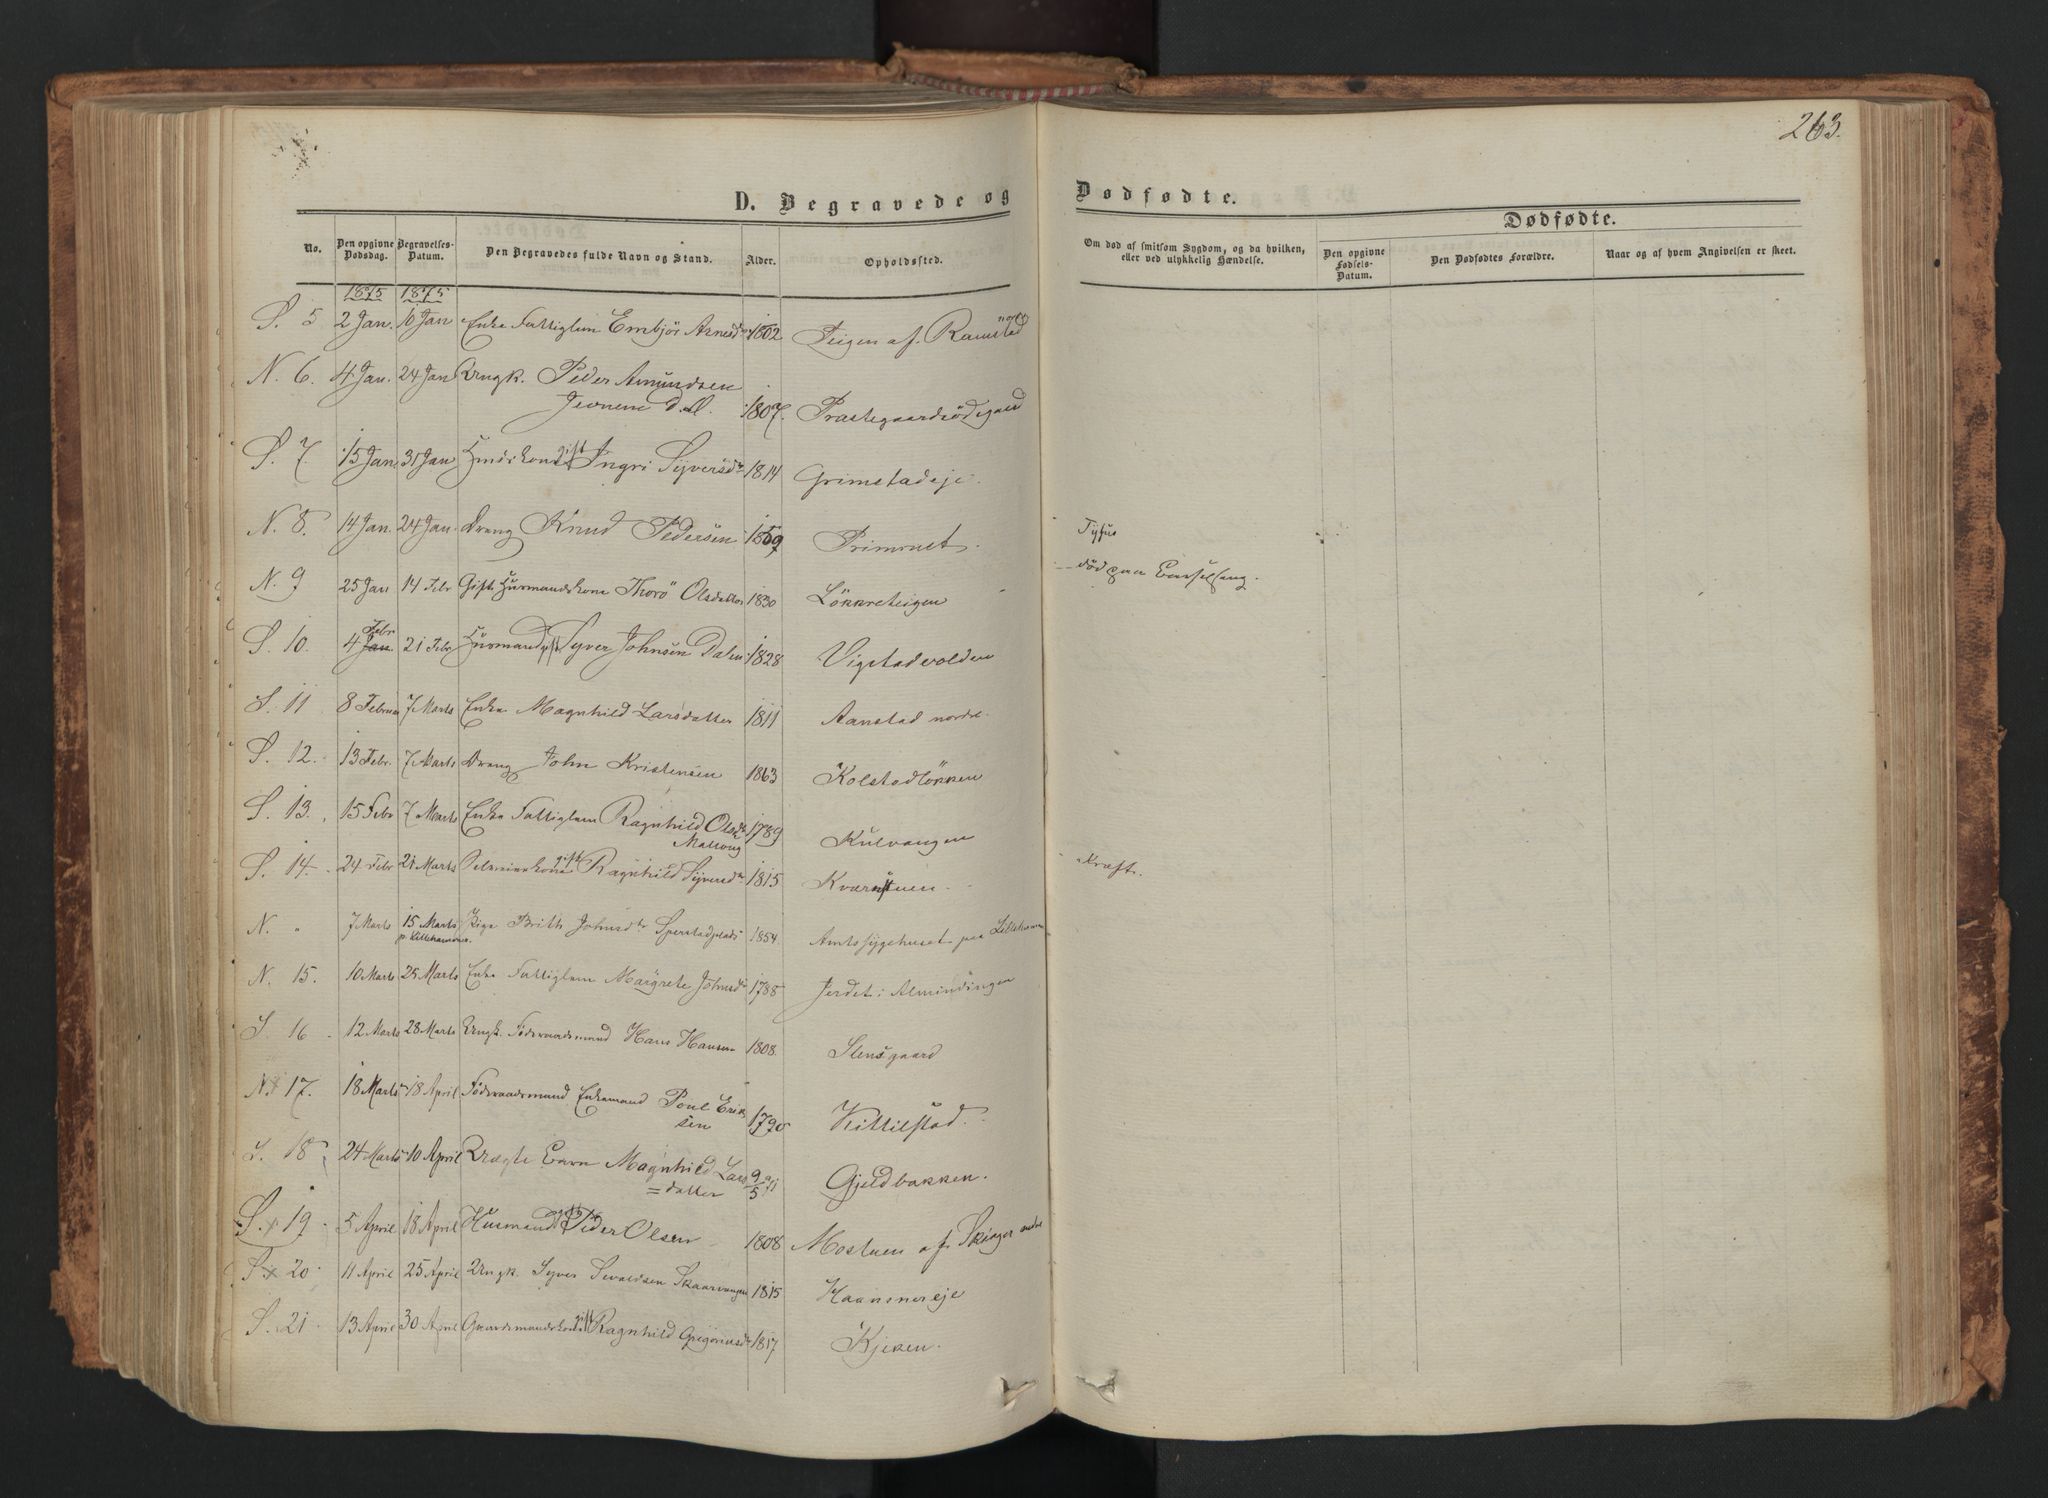 263.
D. Begravede og Dødfødte.
Dødfødte.
No. Den opgivne Dødsdag. Begravelses-Datum. Den Begravedes fulde Navn og Stand. Alder. Opholdssted. Om død af smitsom Sygdom, og da hvilken, eller ved ulykkelig Hændelse. Den opgivne Fødsels-Datum. Den Dødfødtes Forældre. Naar og af hvem Angivelsen er skeet.
1875 1875
S. 5 2 Jan. 16 Jan Enke Fattiglem Embjör Arnesdr 1802 Teigen af Ramstad nordre
N. 6. 4 Jan. 24 Jan Ungk. Peder Amundsen
Jevnem d.l. 1807. Præstegaardsödegaard
S. 7 15 Jan. 31 Jan gift Ingri Syversdr 1814 Grimstadeje.
N. 8. 14 Jan. 24 Jan. Dreng Knud Pedersen 1869 Primrust. Tyfus
N. 9 25 Jan 14 Febr Gift Huusmandskone Thorö Olsdatter 1830 Lökkreteigen död paa Barselseng.
S. 10. 4 Jan. Febr 21 Febr Huusmand gift Syver Johnsen Dalen 1828 Vigstadvolden
S. 11 8 Februar 7 Marts Enke Magnhild Larsdatter 1811 Aanstad nordre.
S. 12. 13 Febr. 7 Marts Dreng John Kristensen 1863 Kolstadlökken
S. 13. 15 Febr 7 Marts Enke Fattiglem Ragnhild Olsdr 1789 Kulvangen
S. 14. 24 Febr 21 Marts gift Ragnhild Syversdr 1815 Kværnstuen Kræft.
N. " 7 Marts 15 Marts p. Lillehammer. Pige Brith Johnsdr Sperstadplads 1854. Amtssygehuset paa Lillehammer
N. 15. 10 Marts 25 Marts Enke Fattiglem Margrete Johnsdr 1788 Jerdet i Almindingen
S. 16 12 Marts 28 Marts Ungk. Föderaadsmand Hans Hansen 1808. Slensgaard
N. 17. 18 Marts 18 April Föderaadsmand Enkemand Poul Erik
sen 1790 Kittilstad.
S. 18 24 Marts 10 April Uægte Barn Magnhild Lars
= datter 9/5 71 Gjeldbakken.
S. 19 5 April 18 April Husmand gift Peder Olsen 1808 Mostuen af Skinger nordre
S. 20 11 April 25 April Ungk. Syver Sevaldsen Skaarvangen 1815 Haansnereje
S. 21 13 April 30 April Gaardmandskone gift Ragnhild Gregoriusdr 1817 Kjeken.